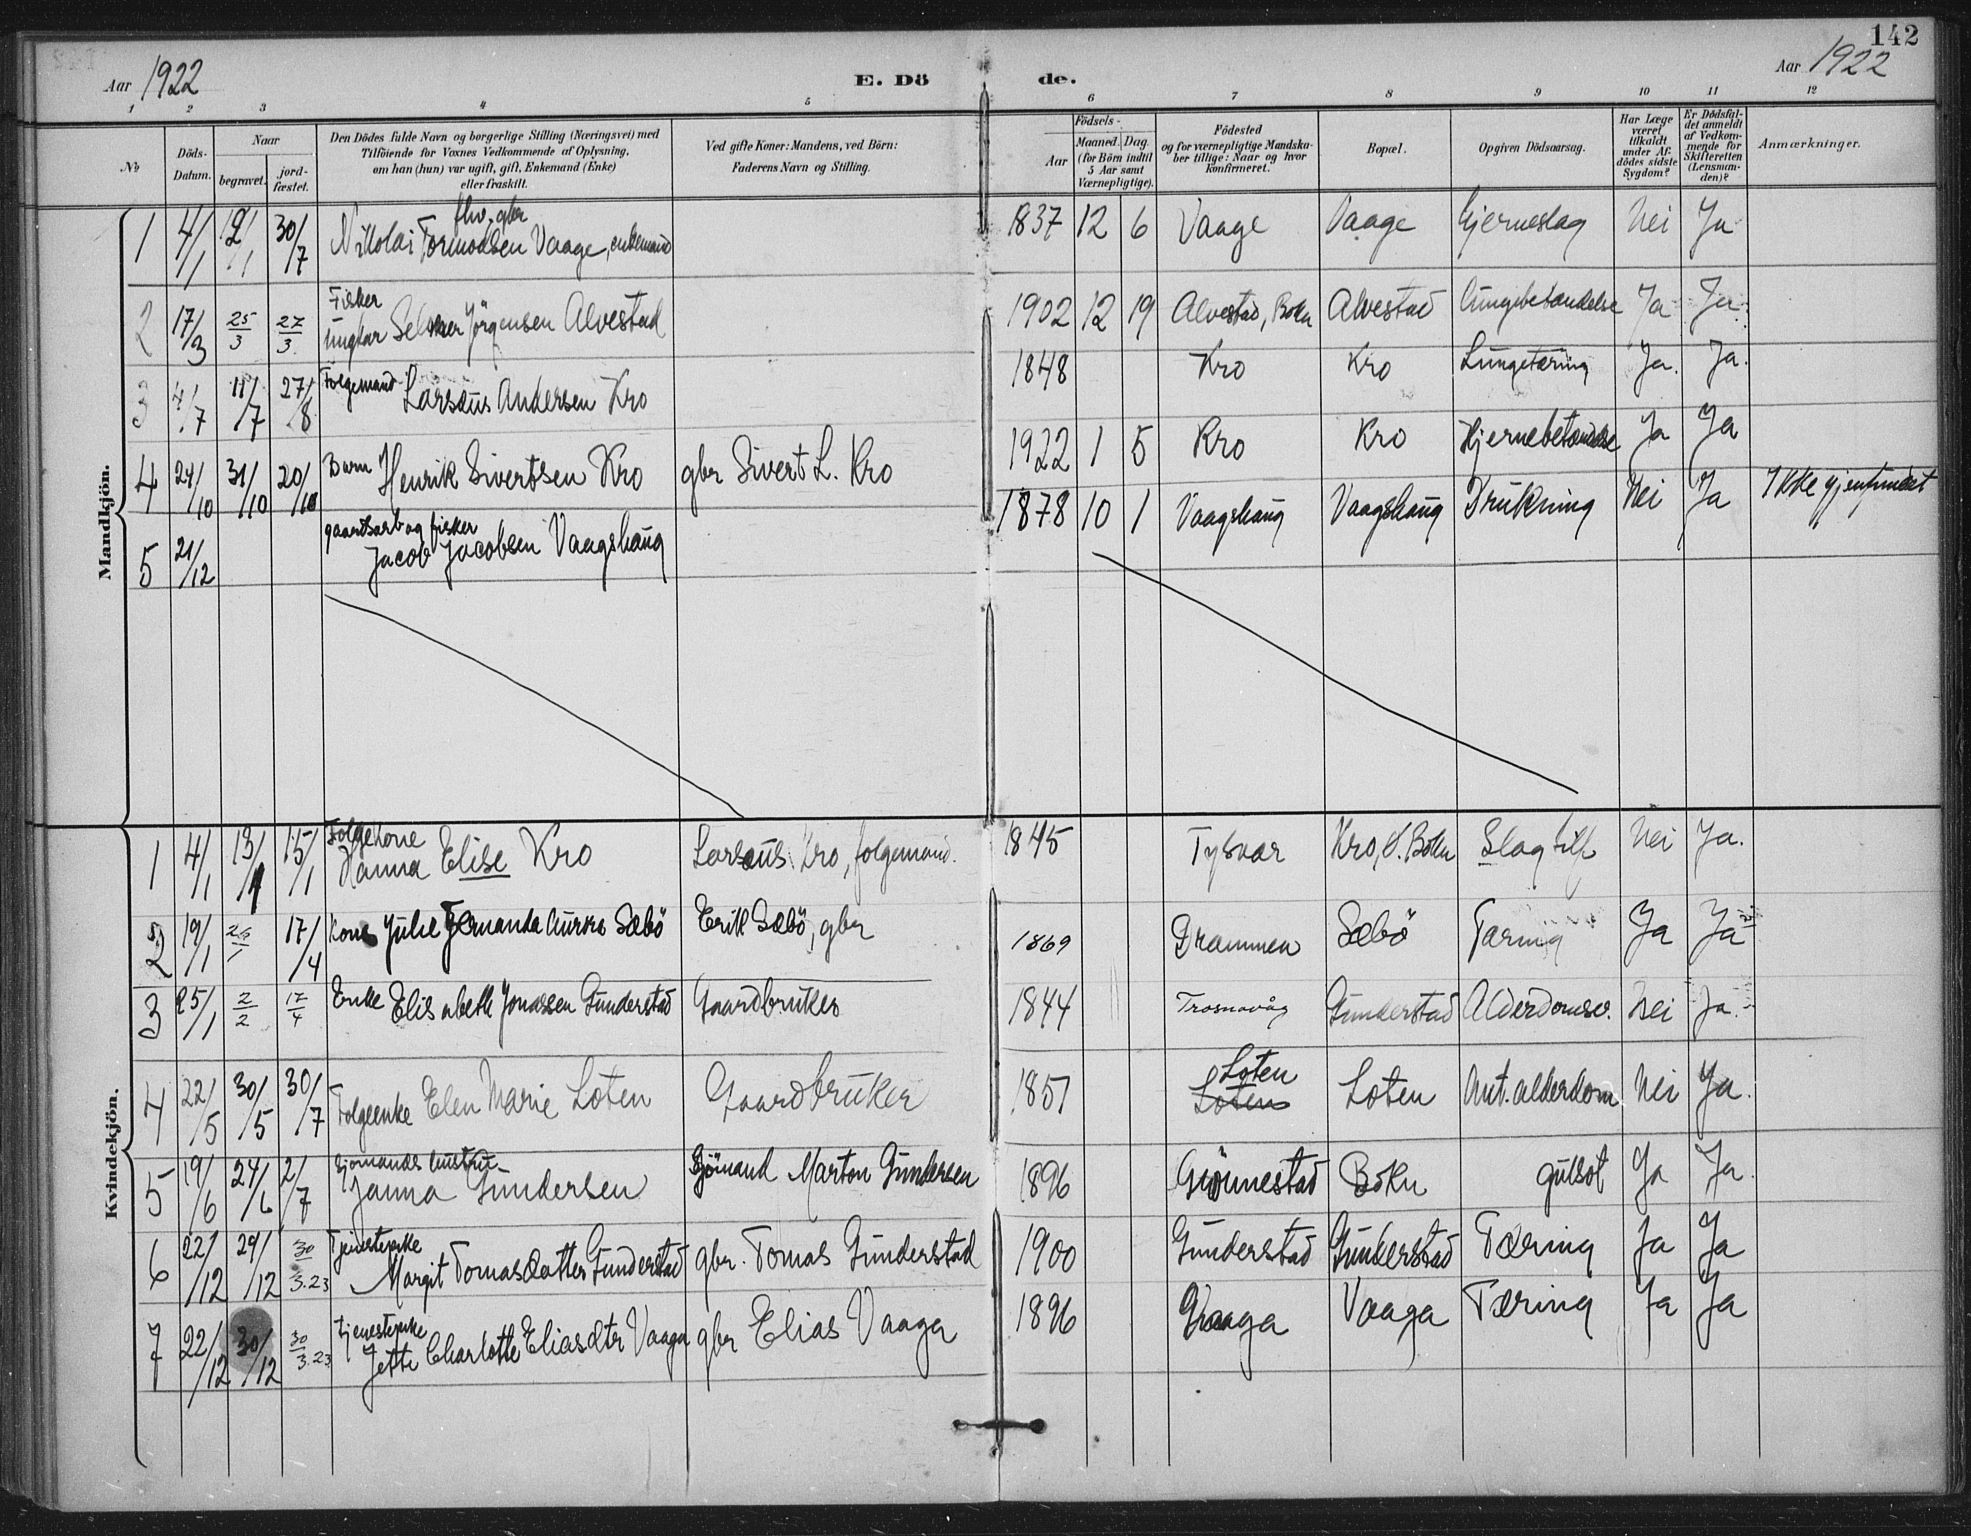 142
Aar 1922
E. Dö de.
Aar 1922
1 2 3 4 5 6 7 8 9 10 11 12
No
Döds-Datum.
Naar
begravet.
jord-fæstet.
Den Dödes fulde Navn og borgerlige Stilling (Næringsvei) med
Tilföiende for Voxnes Vedkommende af Oplysning,
om han (hun) var ugift, gift, Enkemand (Enke)
eller fraskilt.
Ved gifte Koner: Mandens, ved Börn:
Faderens Navn og Stilling.
Födsels-
Aar
Maaned. Dag.
(for Börn indtil
5 Aar samt
Værnepligtige).
Födested
og for værnepligtige Mandska-
ber tillige: Naar og hvor
konfirmeret.
Bopæl.
Opgiven Dödsaarsag.
Har Læge
været
tilkaldt
under Af-
dödes sidste
Sygdom?
Er Dödsfal-
det anmeldt
af Vedkom-
mende for
Skifteretten
(Lensman-
den)?
Anmærkninger.
Mandkjön.
1 4/1 12/1 30/7 fhv. gbr Nikolai Tormodsen Vaage, enkemand 1837 12 6 Vaage Vaage Hjerneslag Nei Ja
2 17/3 25/3 27/3 Fisker ungkar Selmer Jörgensen Alvestad 1902 12 19 Alvestad, Bokn Alvestad Lungebetændelse Ja Ja.
3 4/7 11/7 27/8 Folgemand Larsæus Andersen Kro 1848 Kro Kro Lungetæring Ja. Ja.
4 24/10 31/10 20/10 Barn Henrik Sivertsen Kro gbr Sivert L. Kro 1922 1 5 Kro Kro Hjernebetændelse Ja Ja
5 21/12 gaardsarb og fisker Jacob Jacobsen Vaagshaug 1878 10 1 Vaagshaug Vaagshaug Drukning Nei Ja Ikke gjenfundet
Kvindekjön.
1 4/1 13/1 15/1 Folgekone Hanna Elise Kro Larsæus Kro, folgemand. 1845 Tysvær Kro, S. Bokn Slagtilf Nei Ja.
2 19/1 26/1 17/4 Kone Julie Fernanda Aurora Sæbö Erik Sæbö, gbr 1869 Drammen Sæbö Tæring Ja Ja
3 25/1 2/2 17/4 Enke Elisabeth Jonassen Gunderstad Gaardbruker 1844 Trosnavåg Gunderstad Alderdomsv. Nei Ja.
4 22/5 30/5 30/7 Folgeenke Elen Marie Loten Gaardbruker 1851 Loten Loten Loten Ant. alderdom Nei Ja.
5 19/6 24/6 2/7 Sjømands hustru Janna Gundersen Sjömand Marton Gundersen 1896 Grönnestad Bokn gulsot Ja Ja.
6 22/12 29/12 30/3.23 Tjenestepike Margit Tomasdatter Gunderstad gbr. Tomas Gunderstad 1900 Gunderstad Gunderstad Tæring Ja Ja
7 22/12 30/12 30/3.23 Tjenestepike Jette Charlotte Eliasdtr Vaaga gbr Elias Vaaga 1896 Vaaga Vaaga Tæring Ja Ja